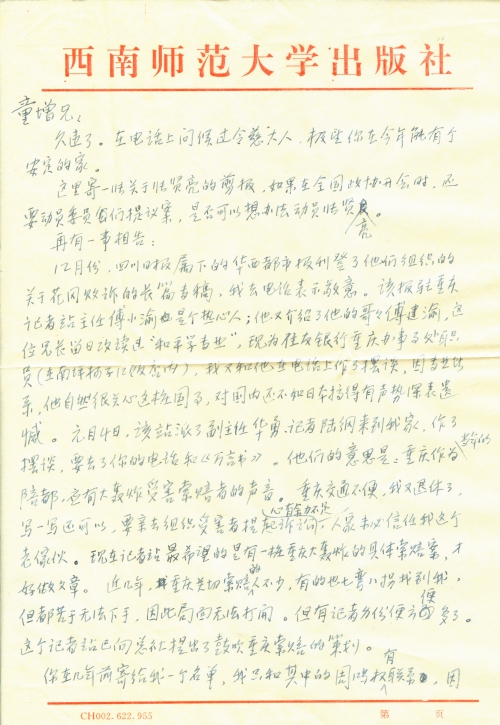 西南师范大学出版社
童增兄:
久违了。在电话上问候过令慈大人,极望你在今年能有个
安定的家。
这里寄一张关于张贤亮的剪报,如果在全国政协开会时,还
要动员委员们提议案,是否可以想办法动员张贤亮
再有一事相告:
12月份,四川日报属下的华西都市报刊登了他们组织的
关于花冈败诉的长篇专稿,我去电话表示敬意。该报驻重庆
记者站主任傅小渝也是个热心人;他又介绍了他的哥哥傅建渝,这
位兄长留日攻读过“和平学专业”,现为住友银行重庆办事处职
员,我又和他在电话上作了摆谈,因专业关
系,他自然很关心这桩国事,对国内还不和日本搞得有声势深表遗
憾。元月4日,该站派了副主任华勇、记者陆纲来到我家,作了
摆谈,要去了你的电话和《万言书》。他们的意思是:重庆作为
陪都,应有大轰炸受害索赔者的声音。重庆交通不便,我又退休了,
写一写还可以,要亲去组织受害者提起诉讼,心余力不足 人家未必信任我这个
老傢伙。现在记者站最希望的是有一桩重庆大轰炸的具体索赔案,才
好做文章。近几年,重庆关切索赔的人不少,有的也七弯八拐找到我,
但都苦于无法下手,因此局面无法打开。但有记者身份便方便多了。
这个记者站已向总社提出了鼓吹重庆索赔的策划。
你在几年前寄给我一个名单,我只和其中的周鸿权有联系,因
CH002.622.955
第 页